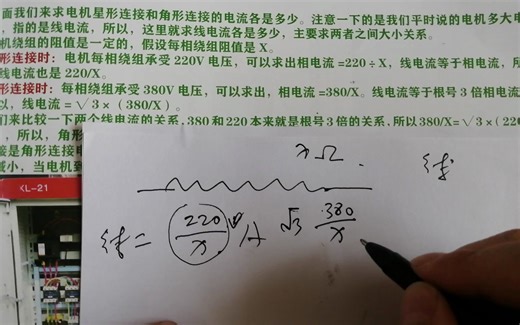 面我们来求电机星形连接和角形连接的电流各是多少。注意一下的是我们平时说的电机多大电
,指的是线电流,所以,这里就求线电流各是多少,主要求两者之间大小关系。
机绕组的阻值是一定的,假设每相绕组阻值是 X。
形连接时:电机每相绕组承受 220V 电压,可以求出相电流 =220÷X,线电流等于相电流,所
线电流也是 220/X。
形连接时:每相绕组承受 380V 电压,可以求出,相电流 =380/X。线电流等于根号 3 倍相电流
以,线电流 =√3×(380/X)。
们来比较一下两个线电流的关系,380 和 220 本来就是根号 3 倍的关系,所以 380/X=√3×(22
,所以,角形
接是角形连接电
减小,当电机到
KL-21
x Ω
线
线 = 220/x A √3 380/x